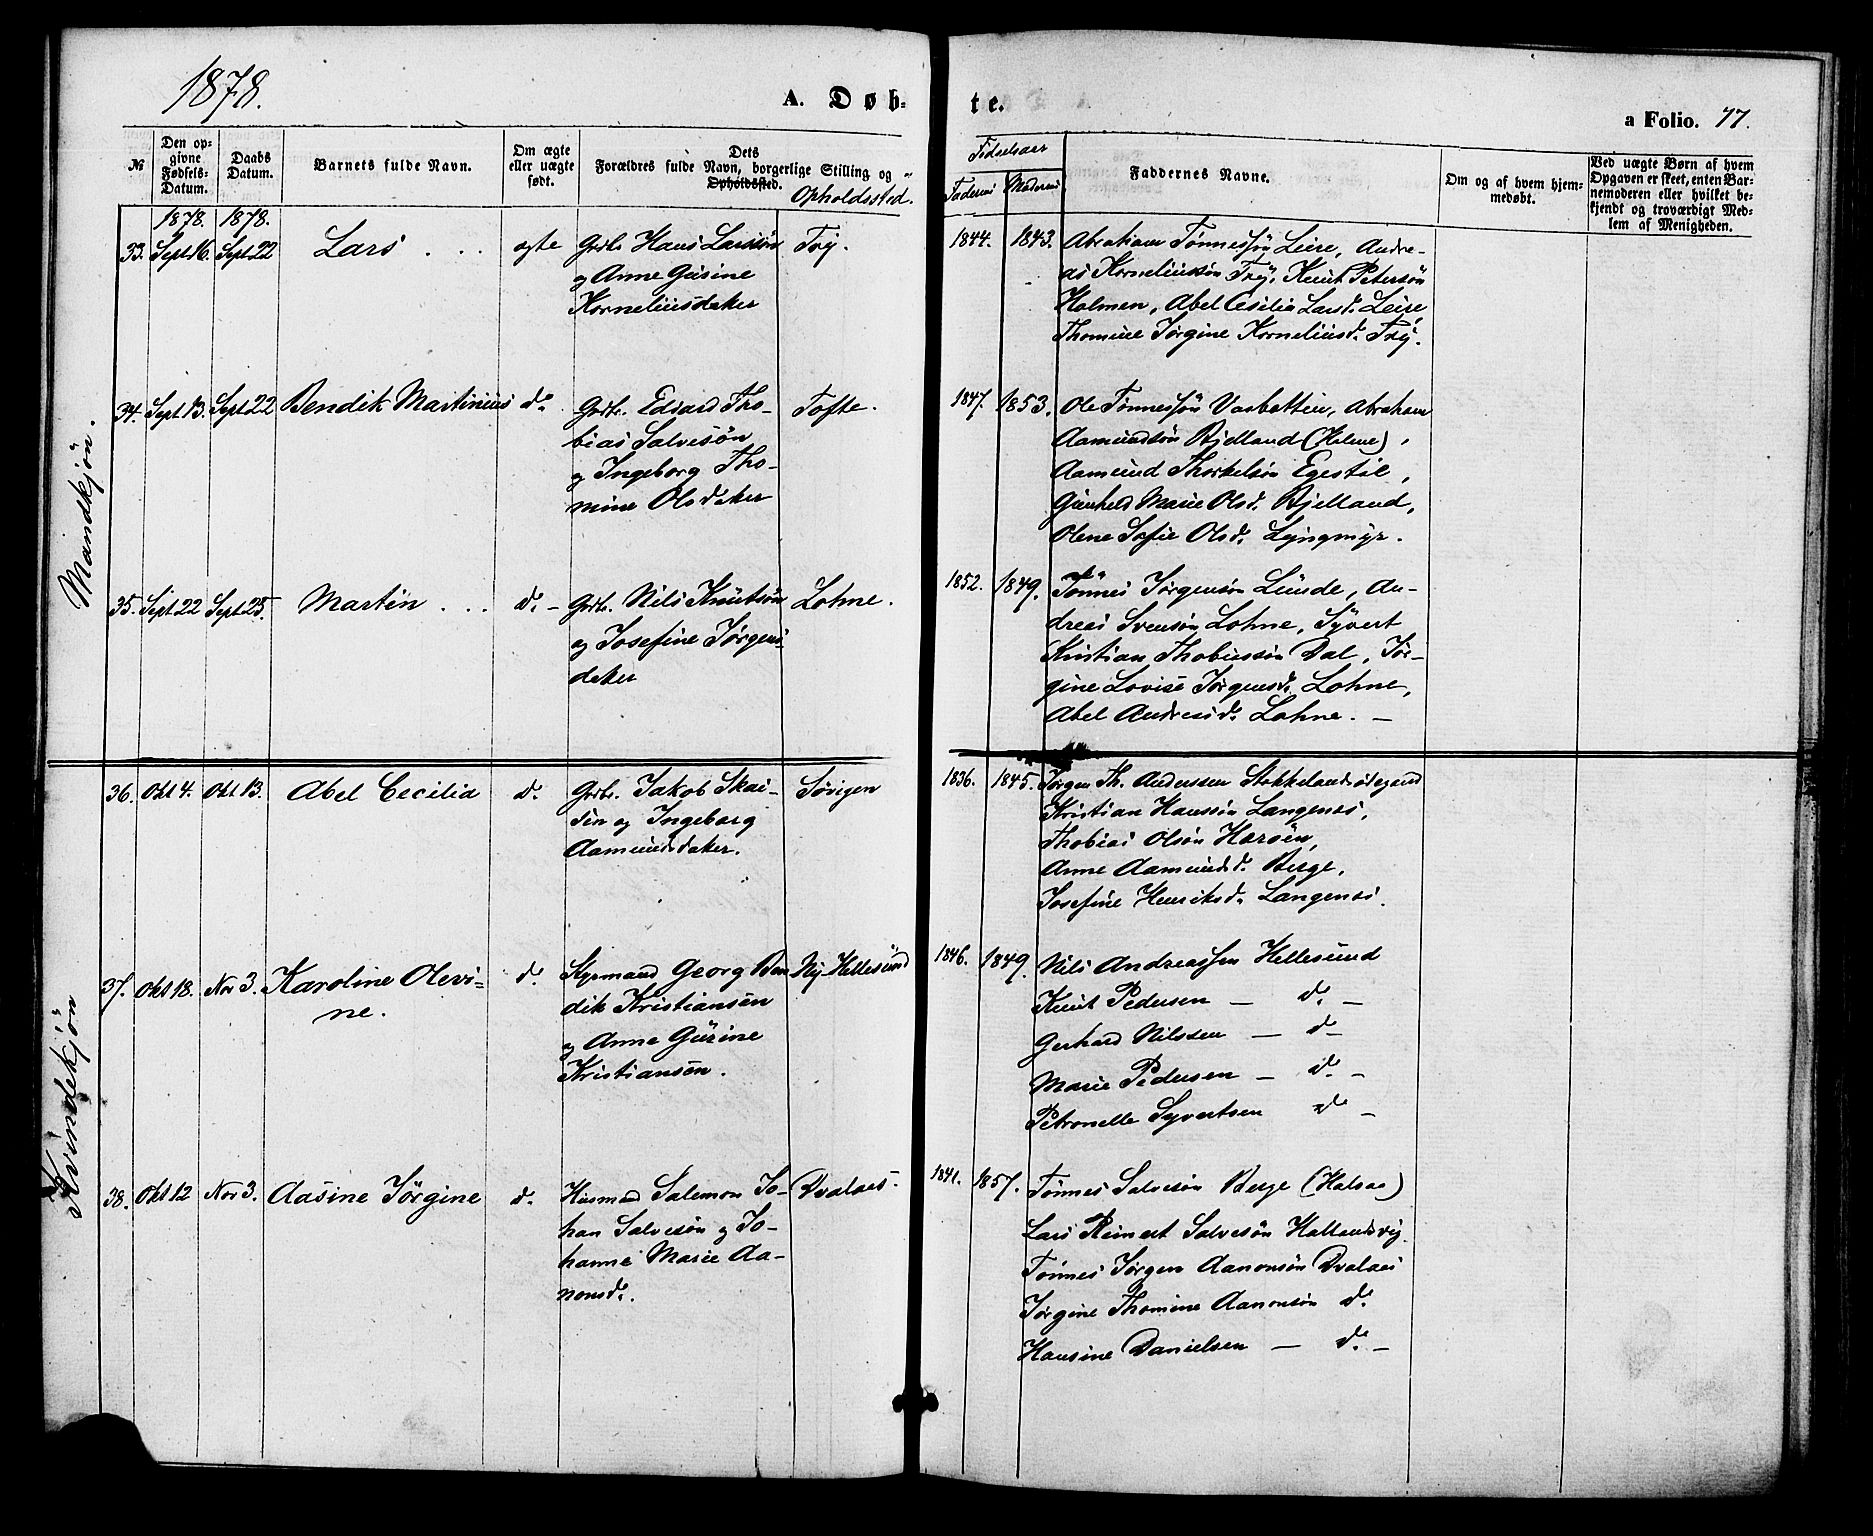 1878.
A. Døb-
te.
a Folio. 77.
№
Den op-
givne
Fødsels-
Datum.
Daabs
Datum.
Barnets fulde Navn.
Om ægte
eller uægte
født.
Dets
Forældres fulde Navn, borgerlige Stilling og
Opholdssted.
Opholdssted.
Fødselsaar
Faderens
Moderens
Faddernes Navne.
Om og af hvem hjem-
medøbt.
Ved uægte Børn af hvem
Opgaven er skeet, enten Bar-
nemoderen eller hvilket be-
kjendt og troværdigt Med-
lem af Menigheden.
Mandkjön.
1878. 1878.
33. Sept 16. Sept 22 Lars . . . ægte
Grbr. Hans Larssön
og Anne Gusine
Korneliusdatter
Try.
1844. 1843.
Abraham Tønnessøn Leire, Andre-
as Korneliussön Try, Knut Petersön
Holmen, Abel Cesilia Larsd. Leire,
Thomine Jørgine Korneliusd. Try.
34. Sept 13. Sept 22 Bendik Martinius do
Grbr. Edvard Tho-
bias Salvesön
og Ingeborg Tho-
mine Olsdatter
Tofte.
1847. 1853.
Ole Tønnessön Varbottin, Abraham
Aamundsön Bjelland (Holme),
Aamund Thorkelsön Egestøl,
Gunhild Marie Olsd. Bjelland,
Olene Sofie Olsd. Lyngmyr.
35. Sept 22 Sept 25. Martin . . . d. -
Grbr. Nils Knutsön
og Josefine Jørgens-
datter
Lohne.
1852. 1849.
Tönnes Jørgensön Lunde, An-
dreas Svensön Lohne, Syvert
Kristian Thobiassön Dal, Jør-
gine Lovise Jørgensd. Lohne,
Abel Andreasd. Lohne. -
Kvindekjön
36. Okt 4. Okt 13. Abel Cecilia d.
Grbr. Jakob Skai-
sen og Ingeborg
Aamundsdatter.
Sørigen
1836. 1845.
Jørgen Th. Anderssen Stokkelandsødegaard
Kristian Hanssön Langenes,
Thobias Olsön Harøen,
Anne Aamundsd. Berge,
Josefine Henriksd. Langenes.
37. Okt 18. Nov 3. Karoline Olevi-
ne. d.
Styrmand Georg Ben-
dik Kristiansen
og Anne Gurine
Kristiansen.
Ny-Hellesund
1846. 1849.
Nils Andreassen Hellesund
Knut Pedersen - d. -
Gerhard Nilssen - d -
Marie Pedersen - d. -
Petronelle Syvertsen d -
38. Okt 12 Nov 3. Aasine Jørgine d.
Husmnd Salemon Jo-
han Salvesön og Jo-
hanne Marie Aa-
nonsd.
Dvalaes.
1841. 1857.
Tönnes Salvesön Berge (Halsaa)
Lars Reinert Salvesön Hallandsvig.
Tönnes Jørgen Aanonsön Dvalaes
Jørgine Thomine Aanonsön d.
Hansine Danielsen - d. -